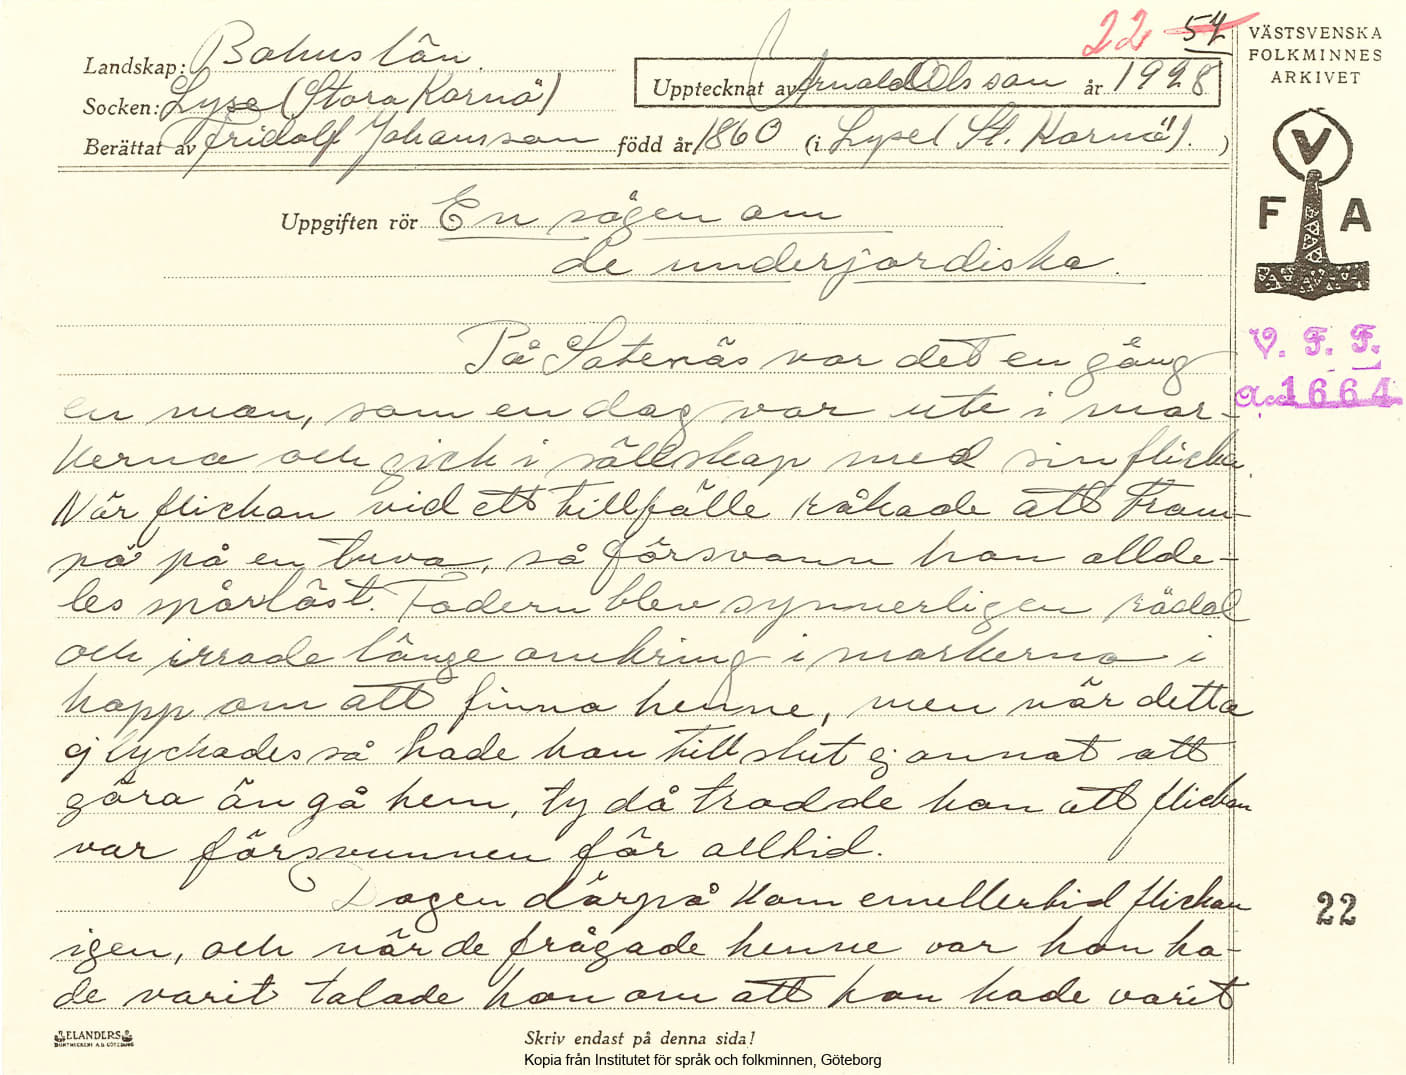 22 54
Landskap: Bohuslän.
Socken: Lyse (Stora Kornö)
Berättat av Fridolf Johansson född år 1860 (i Lyse (St. Kornö). )
Upptecknat av Arnold Olsson år 1928
VÄSTSVENSKA
FOLKMINNES
ARKIVET
V
F A
V. F. F.
Acc. 1664
Uppgiften rör En sägen om
de underjordiska.
På Sotenäs var det en gång
en man, som en dag var ute i mar-
kerna och gick i sällskap med sin flicka.
När flickan vid ett tillfälle råkade att tram-
pa på en tuva, så försvann hon allde-
les spårlöst. Fadern blev synnerligen rädd
och irrade länge omkring i markerna i
hopp om att finna henne, men när detta
ej lyckades så hade han till slut ej annat att
göra än gå hem, ty då trodde han att flickan
var försvunnen för alltid.
Dagen därpå kom emellertid flickan
igen, och när de frågade henne var hon ha-
de varit talade hon om att hon hade varit
22
ELANDERS
BOKTRYCKERI A.B. GÖTEBORG
Skriv endast på denna sida!
Kopia från Institutet för språk och folkminnen, Göteborg